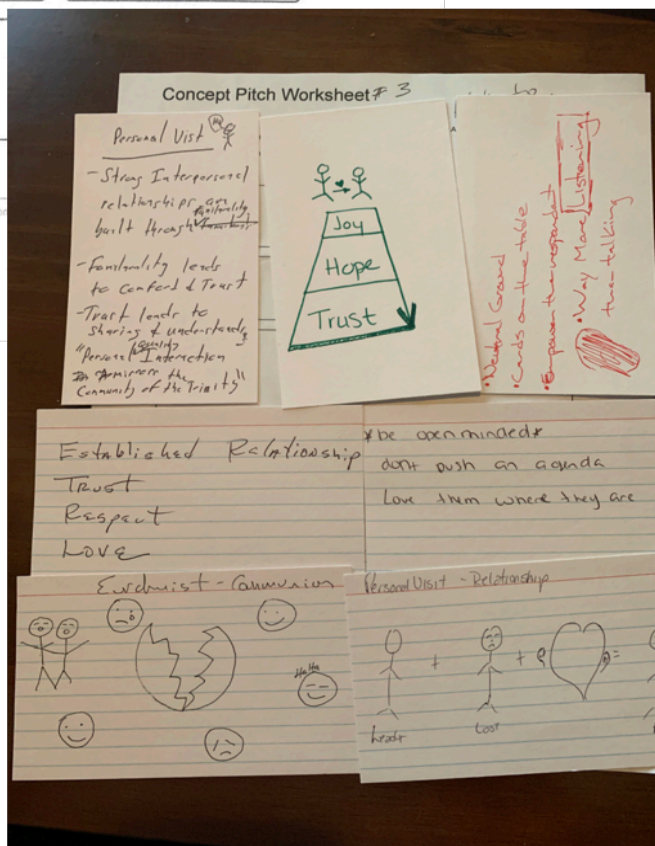 Concept Pitch Worksheet # 3
Personal Vist
Ha
- Strong Interpersonal
relationships are
built through familiarity
- Familularity leads
to Comford & Trust
- Trust leads to
Sharing & understandg
"Personal quality Interaction
mirrors the
Community of the Trinity"
Joy
Hope
Trust
• Neutral Ground
• Cards on the table
• Empower the respondent
• Way More Listening
then talking
Established Relationship
Trust
Respect
Love
*be openminded*
dont push an agenda
Love them where they are
Eucharist - Communion
Ha Ha
Personal Visit - Relationship
+ + =
Leader
Lost